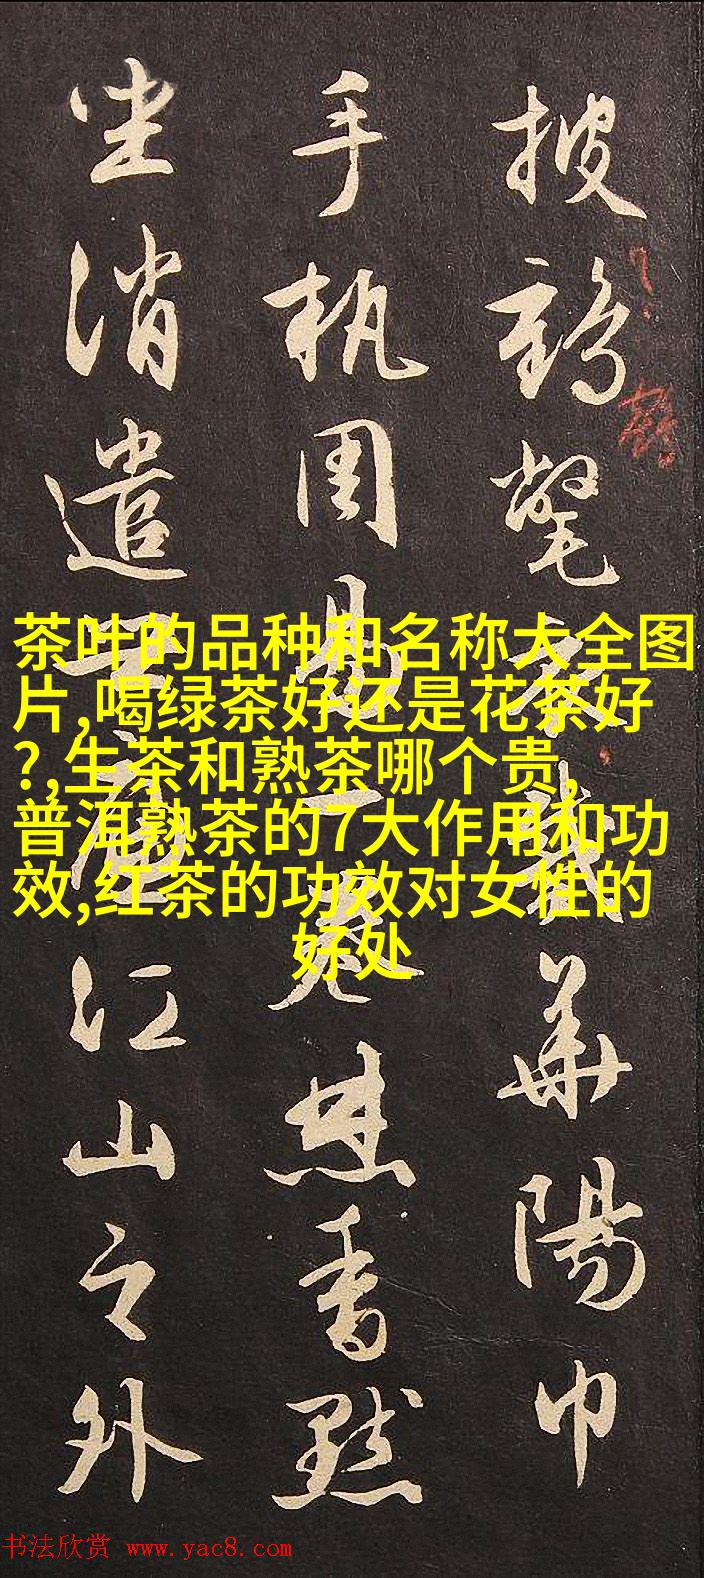 披鶴氅衣戴華陽巾
手執周易一卷焚香默
坐消遣世慮江山之外
茶叶的品种和名称大全图
片,喝绿茶好还是花茶好
?,生茶和熟茶哪个贵,
普洱熟茶的7大作用和功
效,红茶的功效对女性的
好处
书法欣赏 www.yac8.com